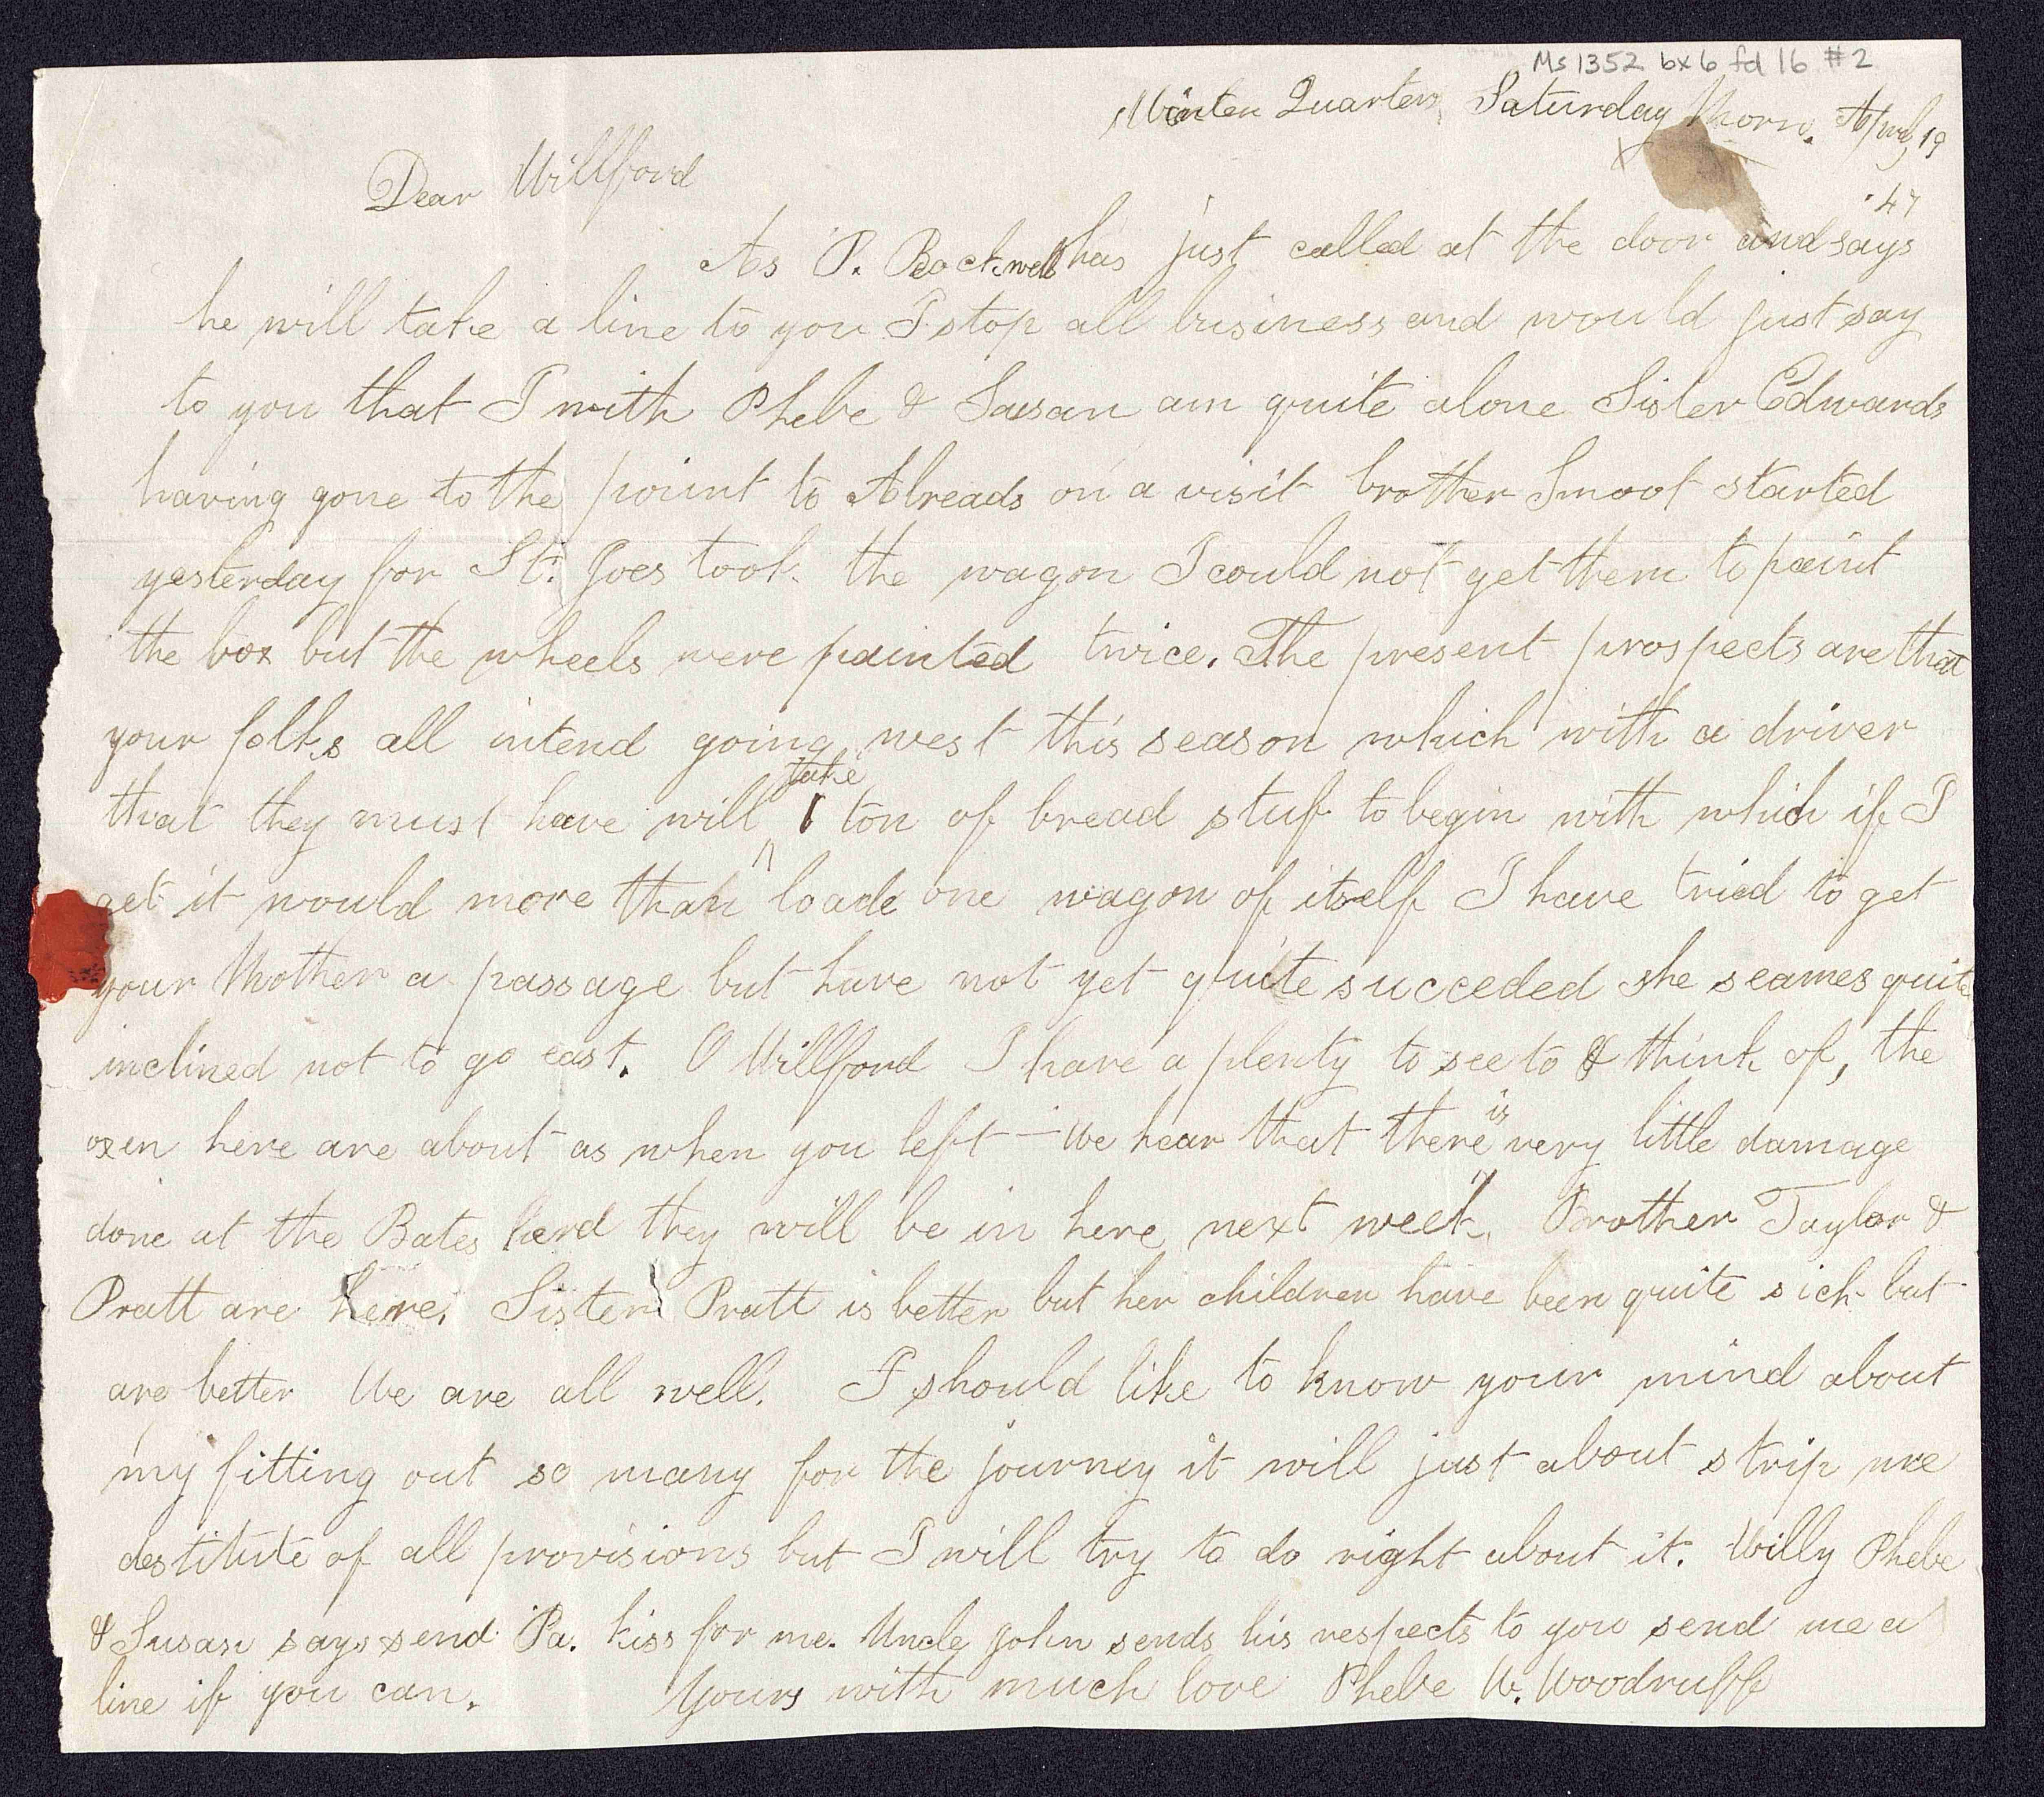 Ms 1352 bx 6 fd 16 #2
Winter Quarters, Saturday Morn. April 19
. 47
Dear Willford
As P. Rockwell has just called at the door and says
he will take a line to you I stop all business and would just say
to you that I with Phebe & Susan am quite alone Sister Edwards
having gone to the point to Abreads on a visit brother Smoot started
yesterday for St. Joes took the wagon I could not get them to paint
the box but the wheels were painted twice. The present prospects are that
your folks all intend going west this season which with a driver
take
that they must have will 1 ton of bread stuf to begin with which if I
get it would more than loade one wagon of itself I have tried to get
your Mother a passage but have not yet quite succeeded she seames quite
inclined not to go east. O Willford I have a plenty to see to & think of, the
oxen here are about as when you left – We hear that there is very little damage
done at the Bates herd they will be in here next week. Brother Taylor &
Pratt are here. Sister Pratt is better but her children have been quite sick but
are better We are all well. I should like to know your mind about
my fitting out so many for the journey it will just about strip me
destitute of all provisions but I will try to do right about it. Willy Phebe
& Susan says send Pa. kiss for me. Uncle John sends his respects to you send me a
line if you can. Yours with much love Phebe W. Woodruff